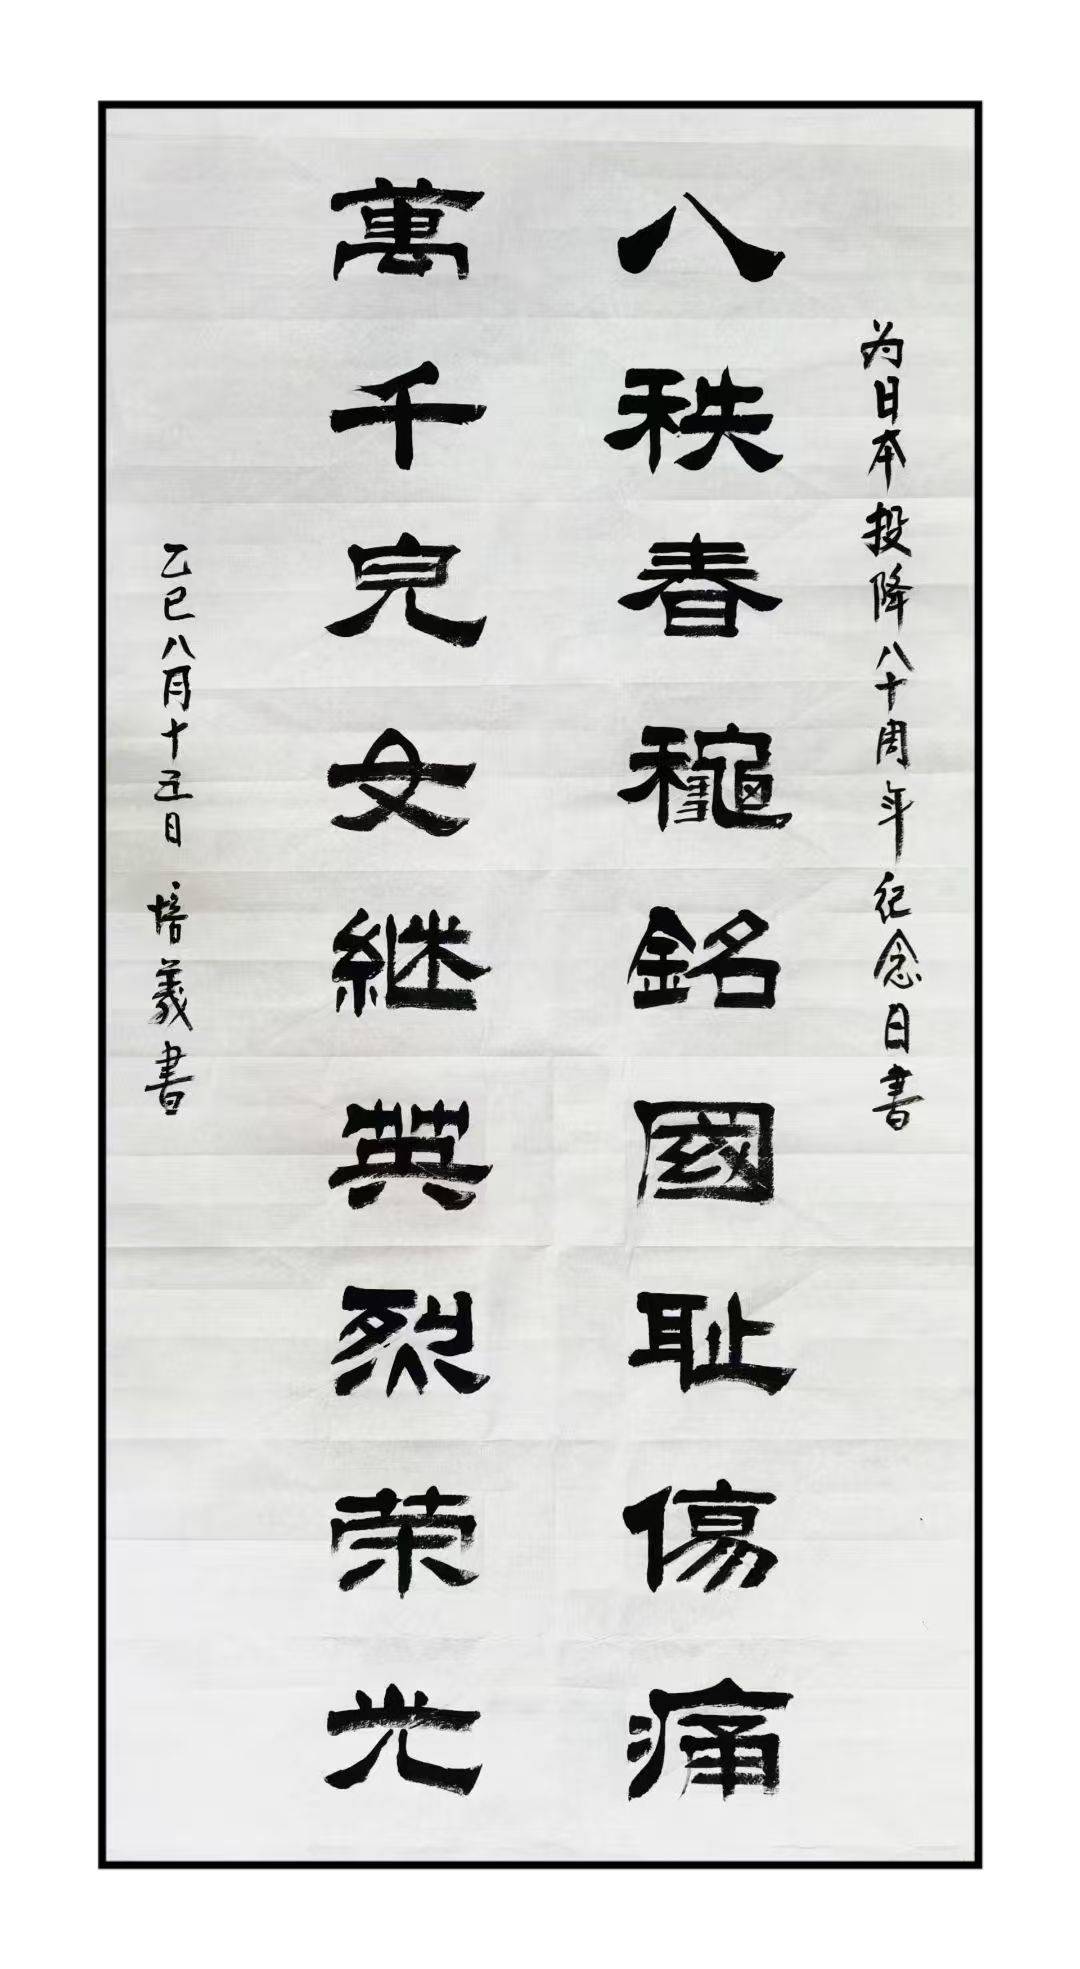 为日本投降八十周年纪念日书
八秩春龝銘國耻傷痛
萬千兒女继英烈荣光
乙巳八月十五日 培義書